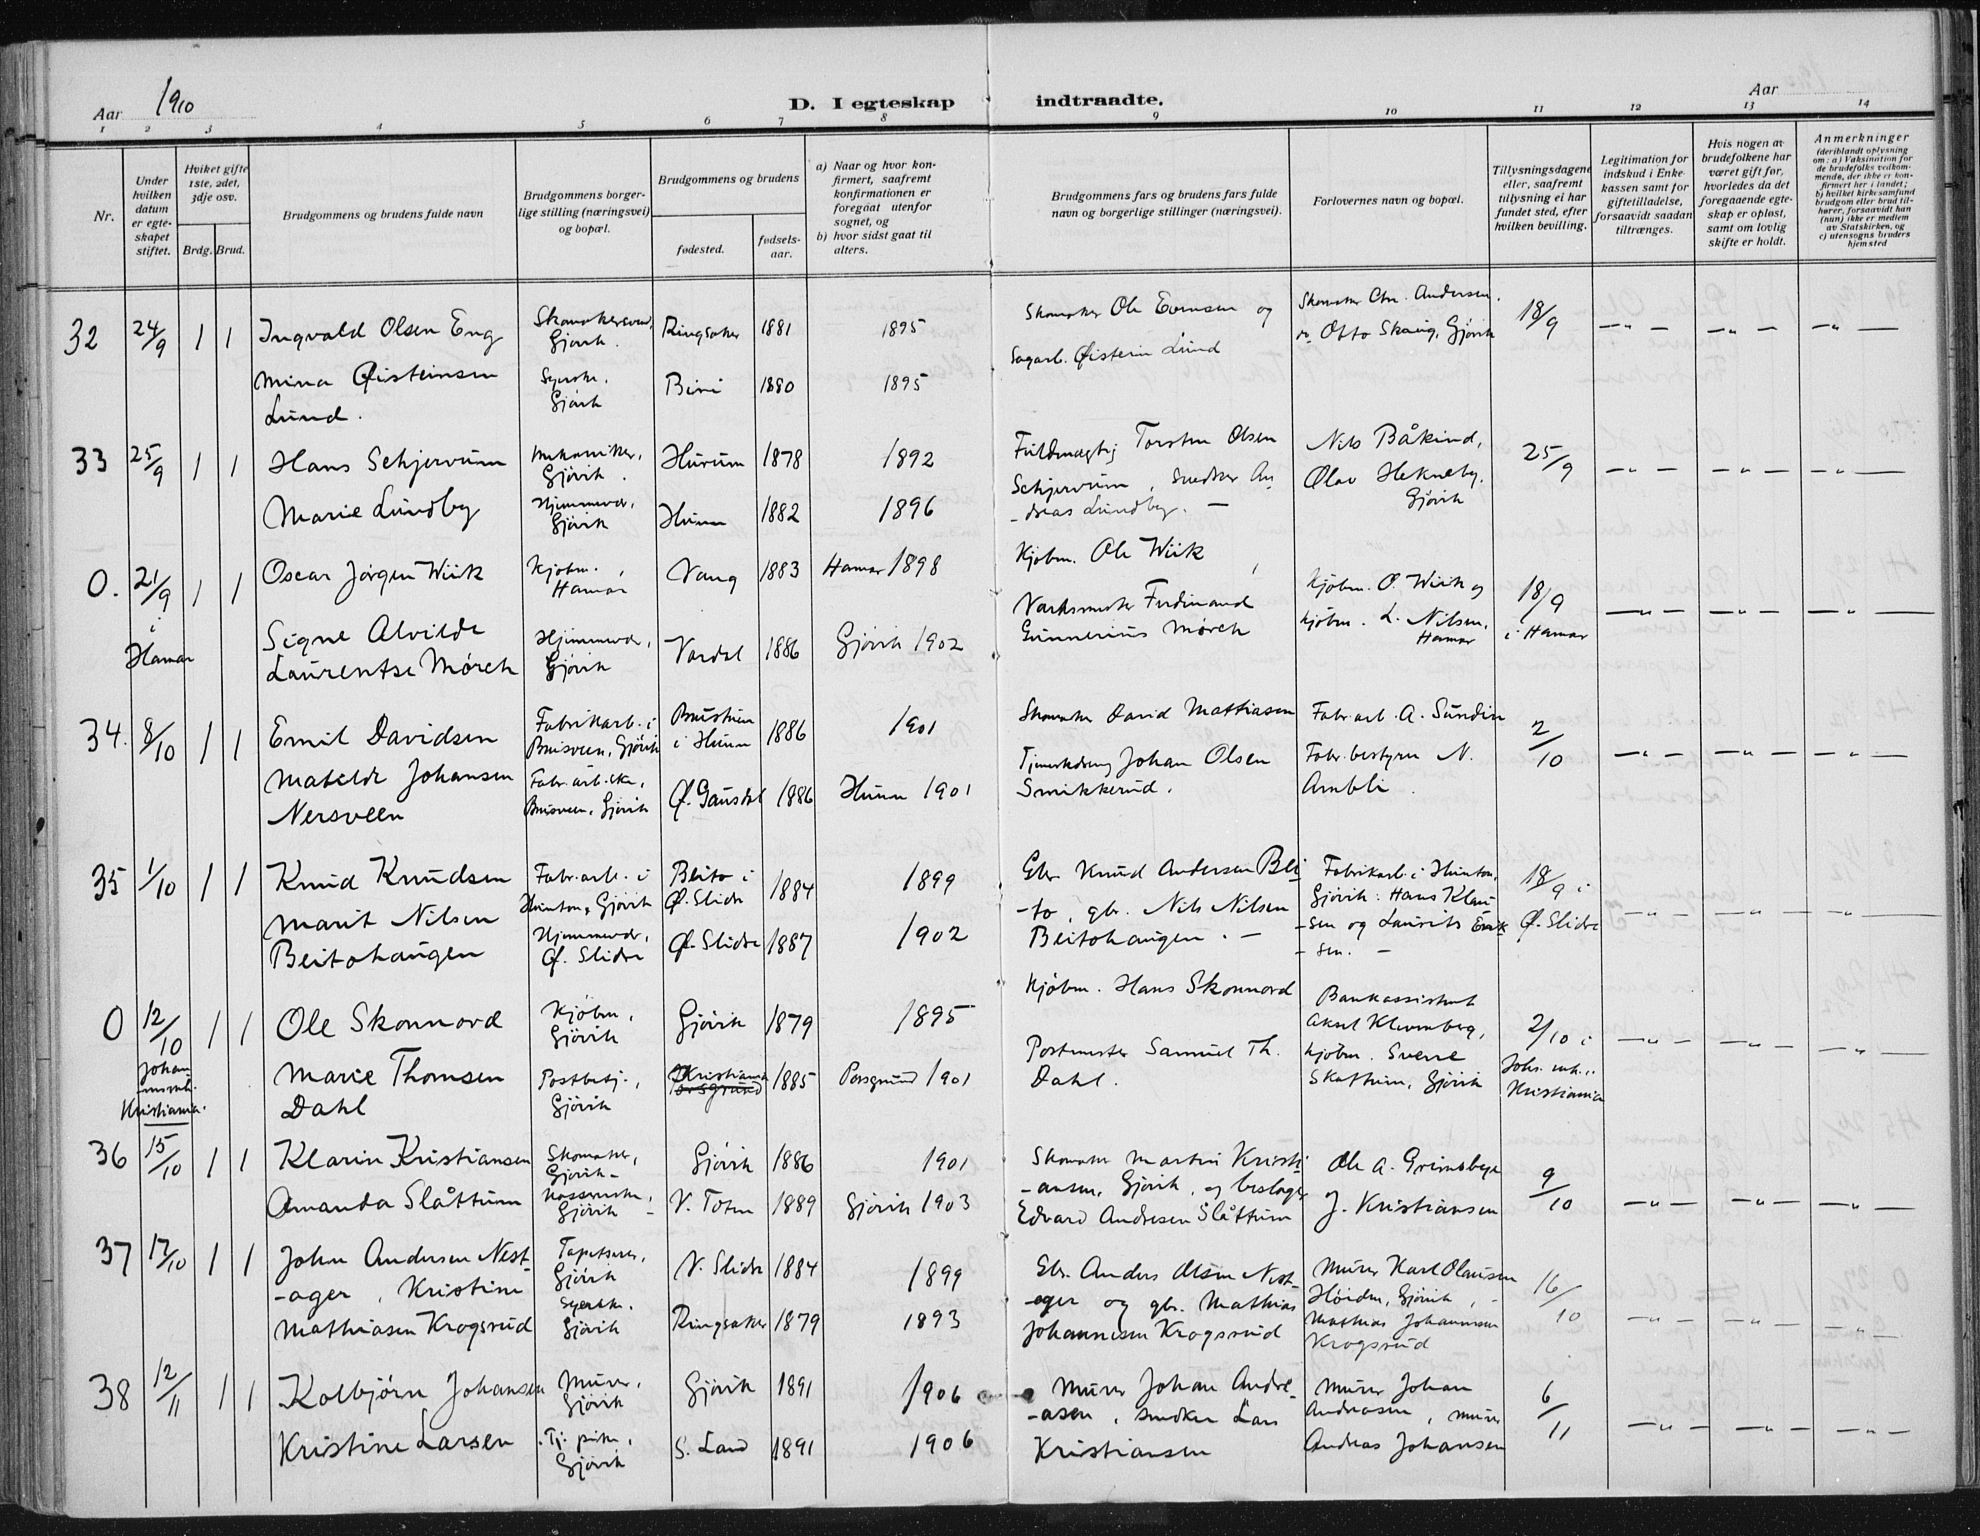 Aar 1910
D. I egteskap indtraadte.
Aar
1 2 3 4 5 6 7 8 9 10 11 12 13 14
Nr.
Under hvilken datum er egteskapet stiftet.
Hviket gifte 1ste, 2det, 3dje osv.
Brdg. Brud.
Brudgommens og brudens fulde navn
Brudgommens borgerlige stilling (næringsvei) og bopæl.
Brudgommens og brudens
fødested.
fødselsaar.
a) Naar og hvor konfirmert, saafremt konfirmationen er foregaat utenfor sognet, og
b) hvor sidst gaat til alters.
Brudgommens fars og brudens fars fulde navn og borgerlige stillinger (næringsvei).
Forlovernes navn og bopæl.
Tillysningsdagene eller, saafremt tillysning ei har fundet sted, efter hvilken bevilling.
Legitimation for indskud i Enkekassen samt for giftetilladelse, forsaavidt saadan tiltrænges.
Hvis nogen av brudefolkene har været gift før, hvorledes da det foregaaende egteskap er opløst, samt om lovlig skifte er holdt.
Anmerkninger
(deriblandt oplysning om: a) Vaksination for de brudefolks vedkommende, der ikke er konfirmert her i landet; b) hvilket kirkesamfund brudgom eller brud tilhører, forsaavidt han (hun) ikke er medlem av Statskirken, og c) utensogns bruders hjemsted
32 24/9 1 1 Ingvald Olsen Eng Skomakersvend, Gjövik. Ringsaker 1881 1895
Mina Øisteinsen Lund. Syerske. Gjövik Biri 1880 1895
Skomaker Ole Evensen og
Sagarb. Øistein Lund
Skomaker Chr. Andersen.
Otto Skaug, Gjövik
18/9 —"— —"— —"—
33 25/9 1 1 Hans Schjervum mekaniker, Gjövik. Hurum 1878 1892
Marie Lundby Hjemmevær., Gjövik Hunn 1882 1896
Fuldmægtig Torsten Olsen
Schjervum, Snedker An-
-dreas Lundby. —
Nils Båkind,
Olav Hekneby.
Gjövik
25/9 —"— —"— —"—
0. 21/9 i Hamar 1 1 Oscar Jörgen Wiik Kjöbm., Hamar Vang 1883 Hamar 1898
Signe Alvilde Laurentse Mørch Hjemmevær., Gjövik Vardal 1886 Gjövik 1902
Kjöbm. Ole Wiik,
Verksmester Ferdinand
Gunnerius Mørch
Kjöbm. O. Wiik og
kjöbm. L. Nilsen,
Hamar
18/9 i Hamar —"— —"— —"—
34. 8/10 1 1 Emil Davidsen Fabrikarb. i Brusveen, Gjövik i Hunn 1886 1901
Matelde Johansen Nersveen Fabr.arb.ske, Brusveen, Gjövik Ø. Gausdal 1886 Hunn 1901
Skomaker David Mathiasen
Johan Olsen
Smikkerud.
Fabr.arb. A. Sundin
Fabr.bestyrer N.
Ambli.
2/10 —"— —"— —"—
35 1/10 1 1 Knud Knudsen Fabr.arb. i Hunton, Gjövik Beito i Ø. Slidre 1884 1899
Marit Nilsen Beitohaugen Hjemmevær., Ø. Slidre Ø. Slidre 1887 1902
Gbr. Knud Andersen Bei-
-to, gbr. Nils Nilsen
Beitohaugen. —
Fabrikarb. i Hunton,
Gjövik: Hans Klau-
-sen og Laurits Erik-
-sen. —
18/9 i Ø. Slidre —"— —"— —"—
0 12/10 Johan Kristiania. 1 1 Ole Skonnord Kjöbm., Gjövik Gjövik 1879 1895
Marie Thomsen Dahl Postbetj., Gjövik Kristiania Porsgrund 1885 Porsgrund 1901
Kjöbm. Hans Skonnord
Postmester Samuel Th.
Dahl.
Bankassistent
Aksel Klevenberg,
kjöbm. Sverre
Skattum, Gjövik
2/10 i Kristiania —"— —"— —"—
36 15/10 1 1 Klarin Kristiansen Skomaker, Gjövik- Gjövik 1886 1901
Amanda Slåttum Gjövik - V. Toten 1889 Gjövik 1903
Skomaker Martin Kristi-
-ansen, Gjövik, og beslager
Edvard Andresen Slåttum
Ole A. Grimsbye
og J. Kristiansen
9/10 —"— —"— —"—
37 17/10 1 1 John Andersen Nest- Tapetserer, Gjövik V. Slidre 1884 1899
-ager, Kristine
Mathiasen Krogsrud Syerske. Gjövik Ringsaker 1879 1893
Gbr. Anders Olsen Nest-
-eger og gbr. Mathias
Johannesen Krogsrud
Murer Karl Olausen
Høiden, Gjövik, -
Mathias Johannesen
Krogsrud
16/10 —"— —"— —"—
38 12/11 1 1 Kolbjörn Johansen Murer, Gjövik Gjövik 1891 1906
Kristine Larsen Tj. pike, Gjövik S. Land 1891 1906
Murer Johan Andre-
-asen, snedker Lars
Kristiansen
Murer Johan
Andreasen, murer
Andreas Johansen
6/11 —"— —"— —"—